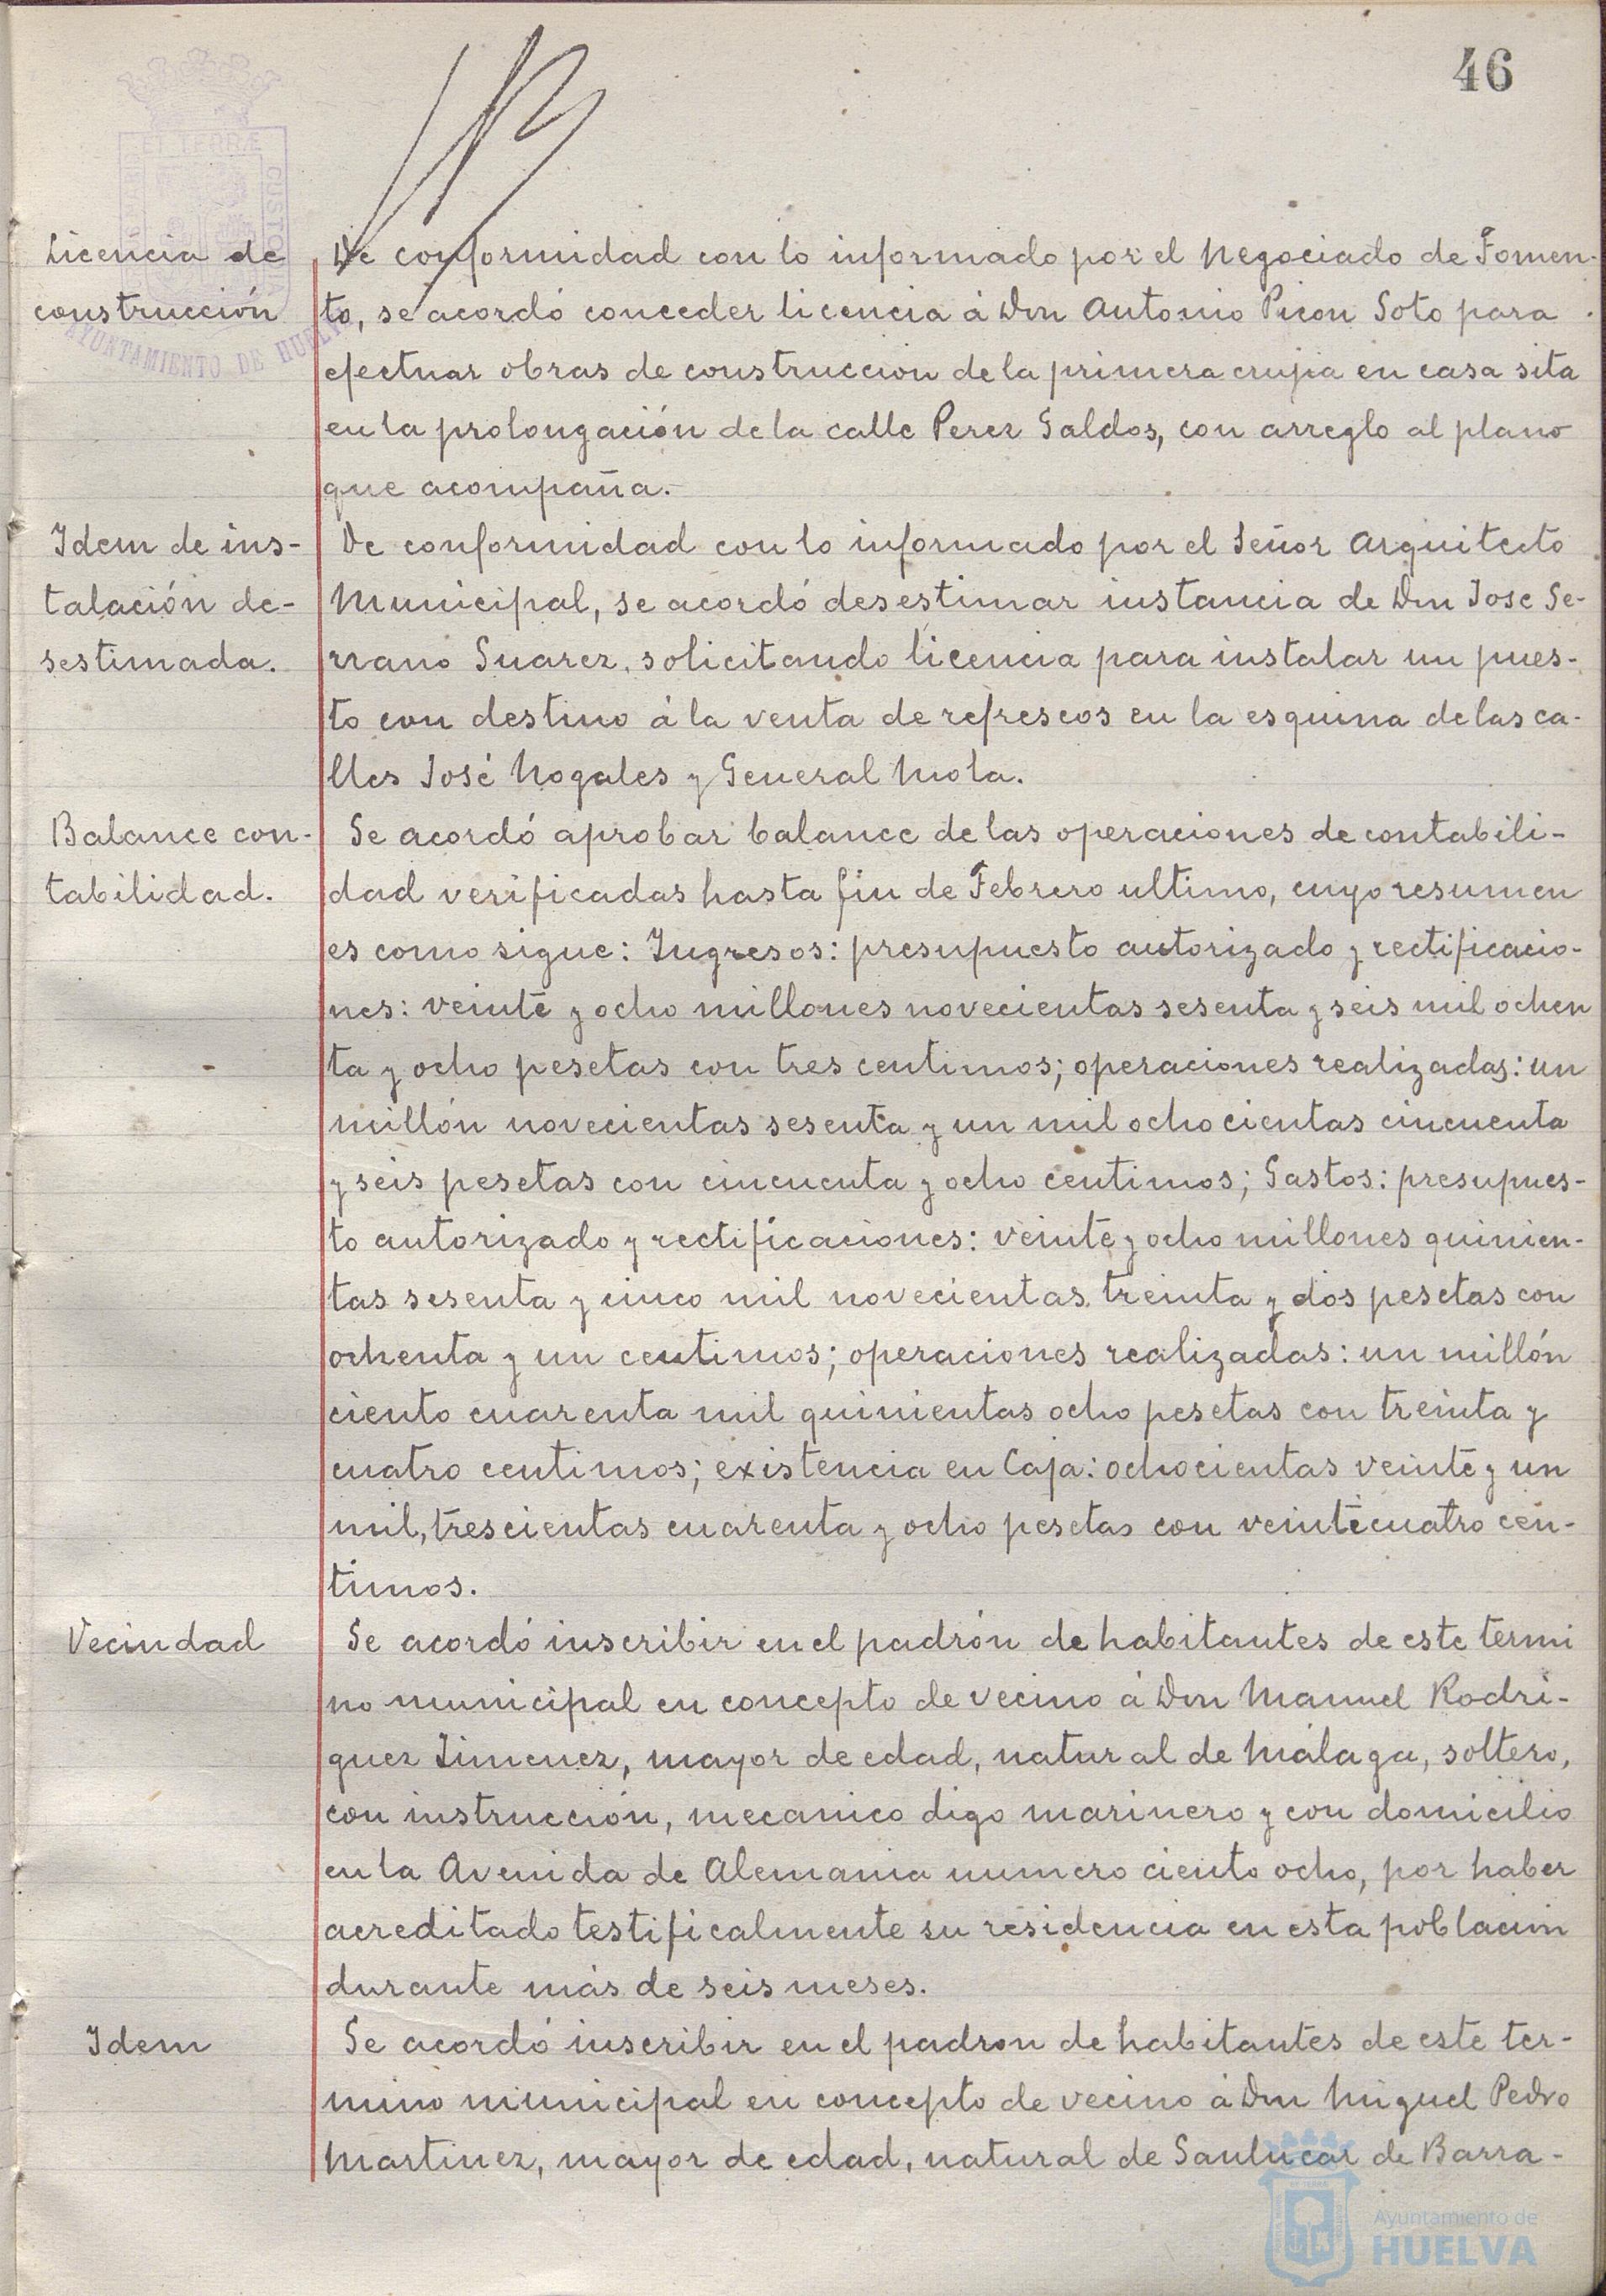 46
Licencia de
construcción
De conformidad con lo informado por el Negociado de Fomen-
to, se acordó conceder licencia á Don Antonio Picon Soto para
efectuar obras de construccion de la primera crujia en casa sita
en la prolongación de la calle Perez Galdos, con arreglo al plano
que acompaña.
Idem de ins-
talación de-
sestimada.
De conformidad con lo informado por el Señor Arquitecto
Municipal, se acordó desestimar instancia de Don Jose Se-
rrano Suarez, solicitando licencia para instalar un pues-
to con destino á la venta de refrescos en la esquina de las ca-
lles José Nogales y General Mola.
Balance con-
tabilidad.
Se acordó aprobar balance de las operaciones de contabili-
dad verificadas hasta fin de Febrero ultimo, cuyo resumen
es como sigue: Ingresos: presupuesto autorizado y rectificacio-
nes: veinte y ocho millones novecientas sesenta y seis mil ochen
ta y ocho pesetas con tres centimos; operaciones realizadas: un
millón novecientas sesenta y un mil ochocientas cincuenta
y seis pesetas con cincuenta y ocho centimos; Gastos: presupues-
to autorizado y rectificaciones: veinte y ocho millones quinien-
tas sesenta y cinco mil novecientas treinta y dos pesetas con
ochenta y un centimos; operaciones realizadas: un millón
ciento cuarenta mil quinientas ocho pesetas con treinta y
cuatro centimos; existencia en Caja: ochocientas veinte y un
mil, trescientas cuarenta y ocho pesetas con veinticuatro cen-
timos.
Vecindad
Se acordó inscribir en el padrón de habitantes de este termi
no municipal en concepto de vecino á Don Manuel Rodri-
guez Jimenez, mayor de edad, natural de Málaga, soltero,
con instrucción, mecanico digo marinero y con domicilio
en la Avenida de Alemania numero ciento ocho, por haber
acreditado testificalmente su residencia en esta poblacion
durante más de seis meses.
Idem
Se acordó inscribir en el padron de habitantes de este ter-
mino municipal en concepto de vecino á Don Miguel Pedro
Martinez, mayor de edad, natural de Sanlucar de Barra-
ET TERRÆ
CUSTODIA
AYUNTAMIENTO DE HUELVA
Ayuntamiento de
HUELVA